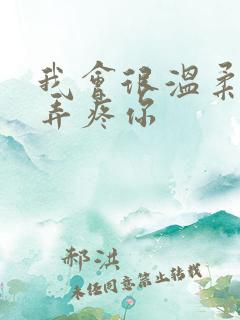 我會很溫柔
弄疼你
郝洪
未经同意禁止转载